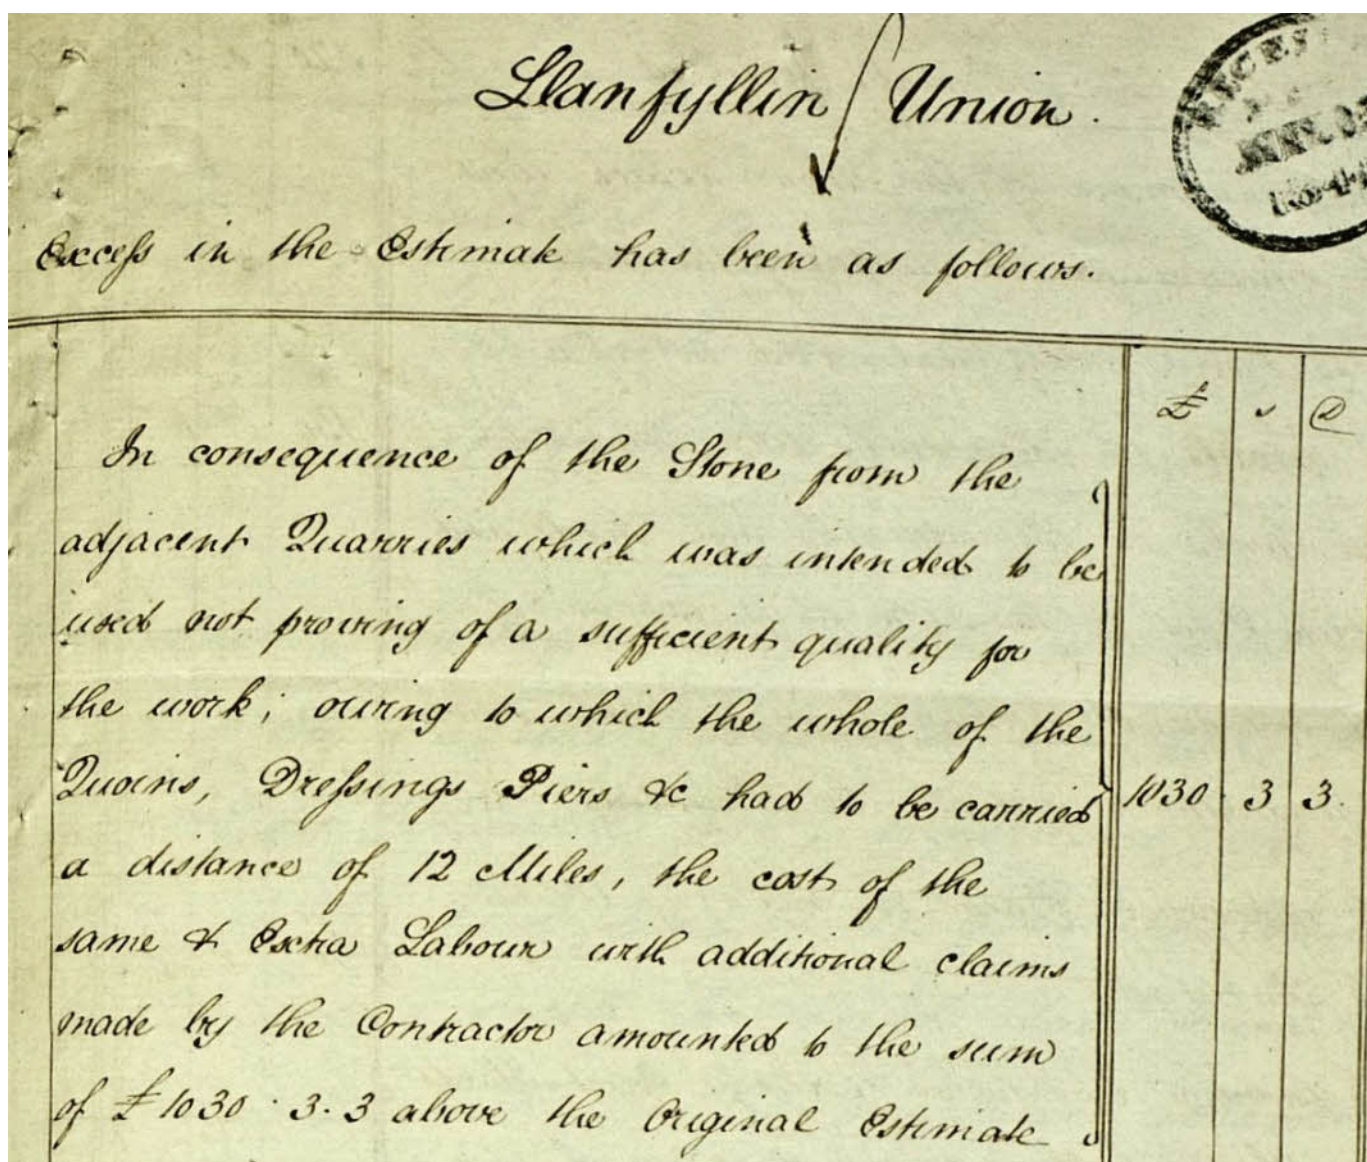 Llanfyllin Union.
Excess in the Estimate has been as follows.
£ s D
In consequence of the Stone from the
adjacent Quarries which was intended to be
used not proving of a sufficient quality for
the work; owing to which the whole of the
Quoins, Dressings Piers &c had to be carried
1030 . 3 3.
a distance of 12 Miles, the cost of the
same & Extra Labour with additional claims
made by the Contractor amounted to the sum
of £1030 . 3 . 3 above the Original Estimate